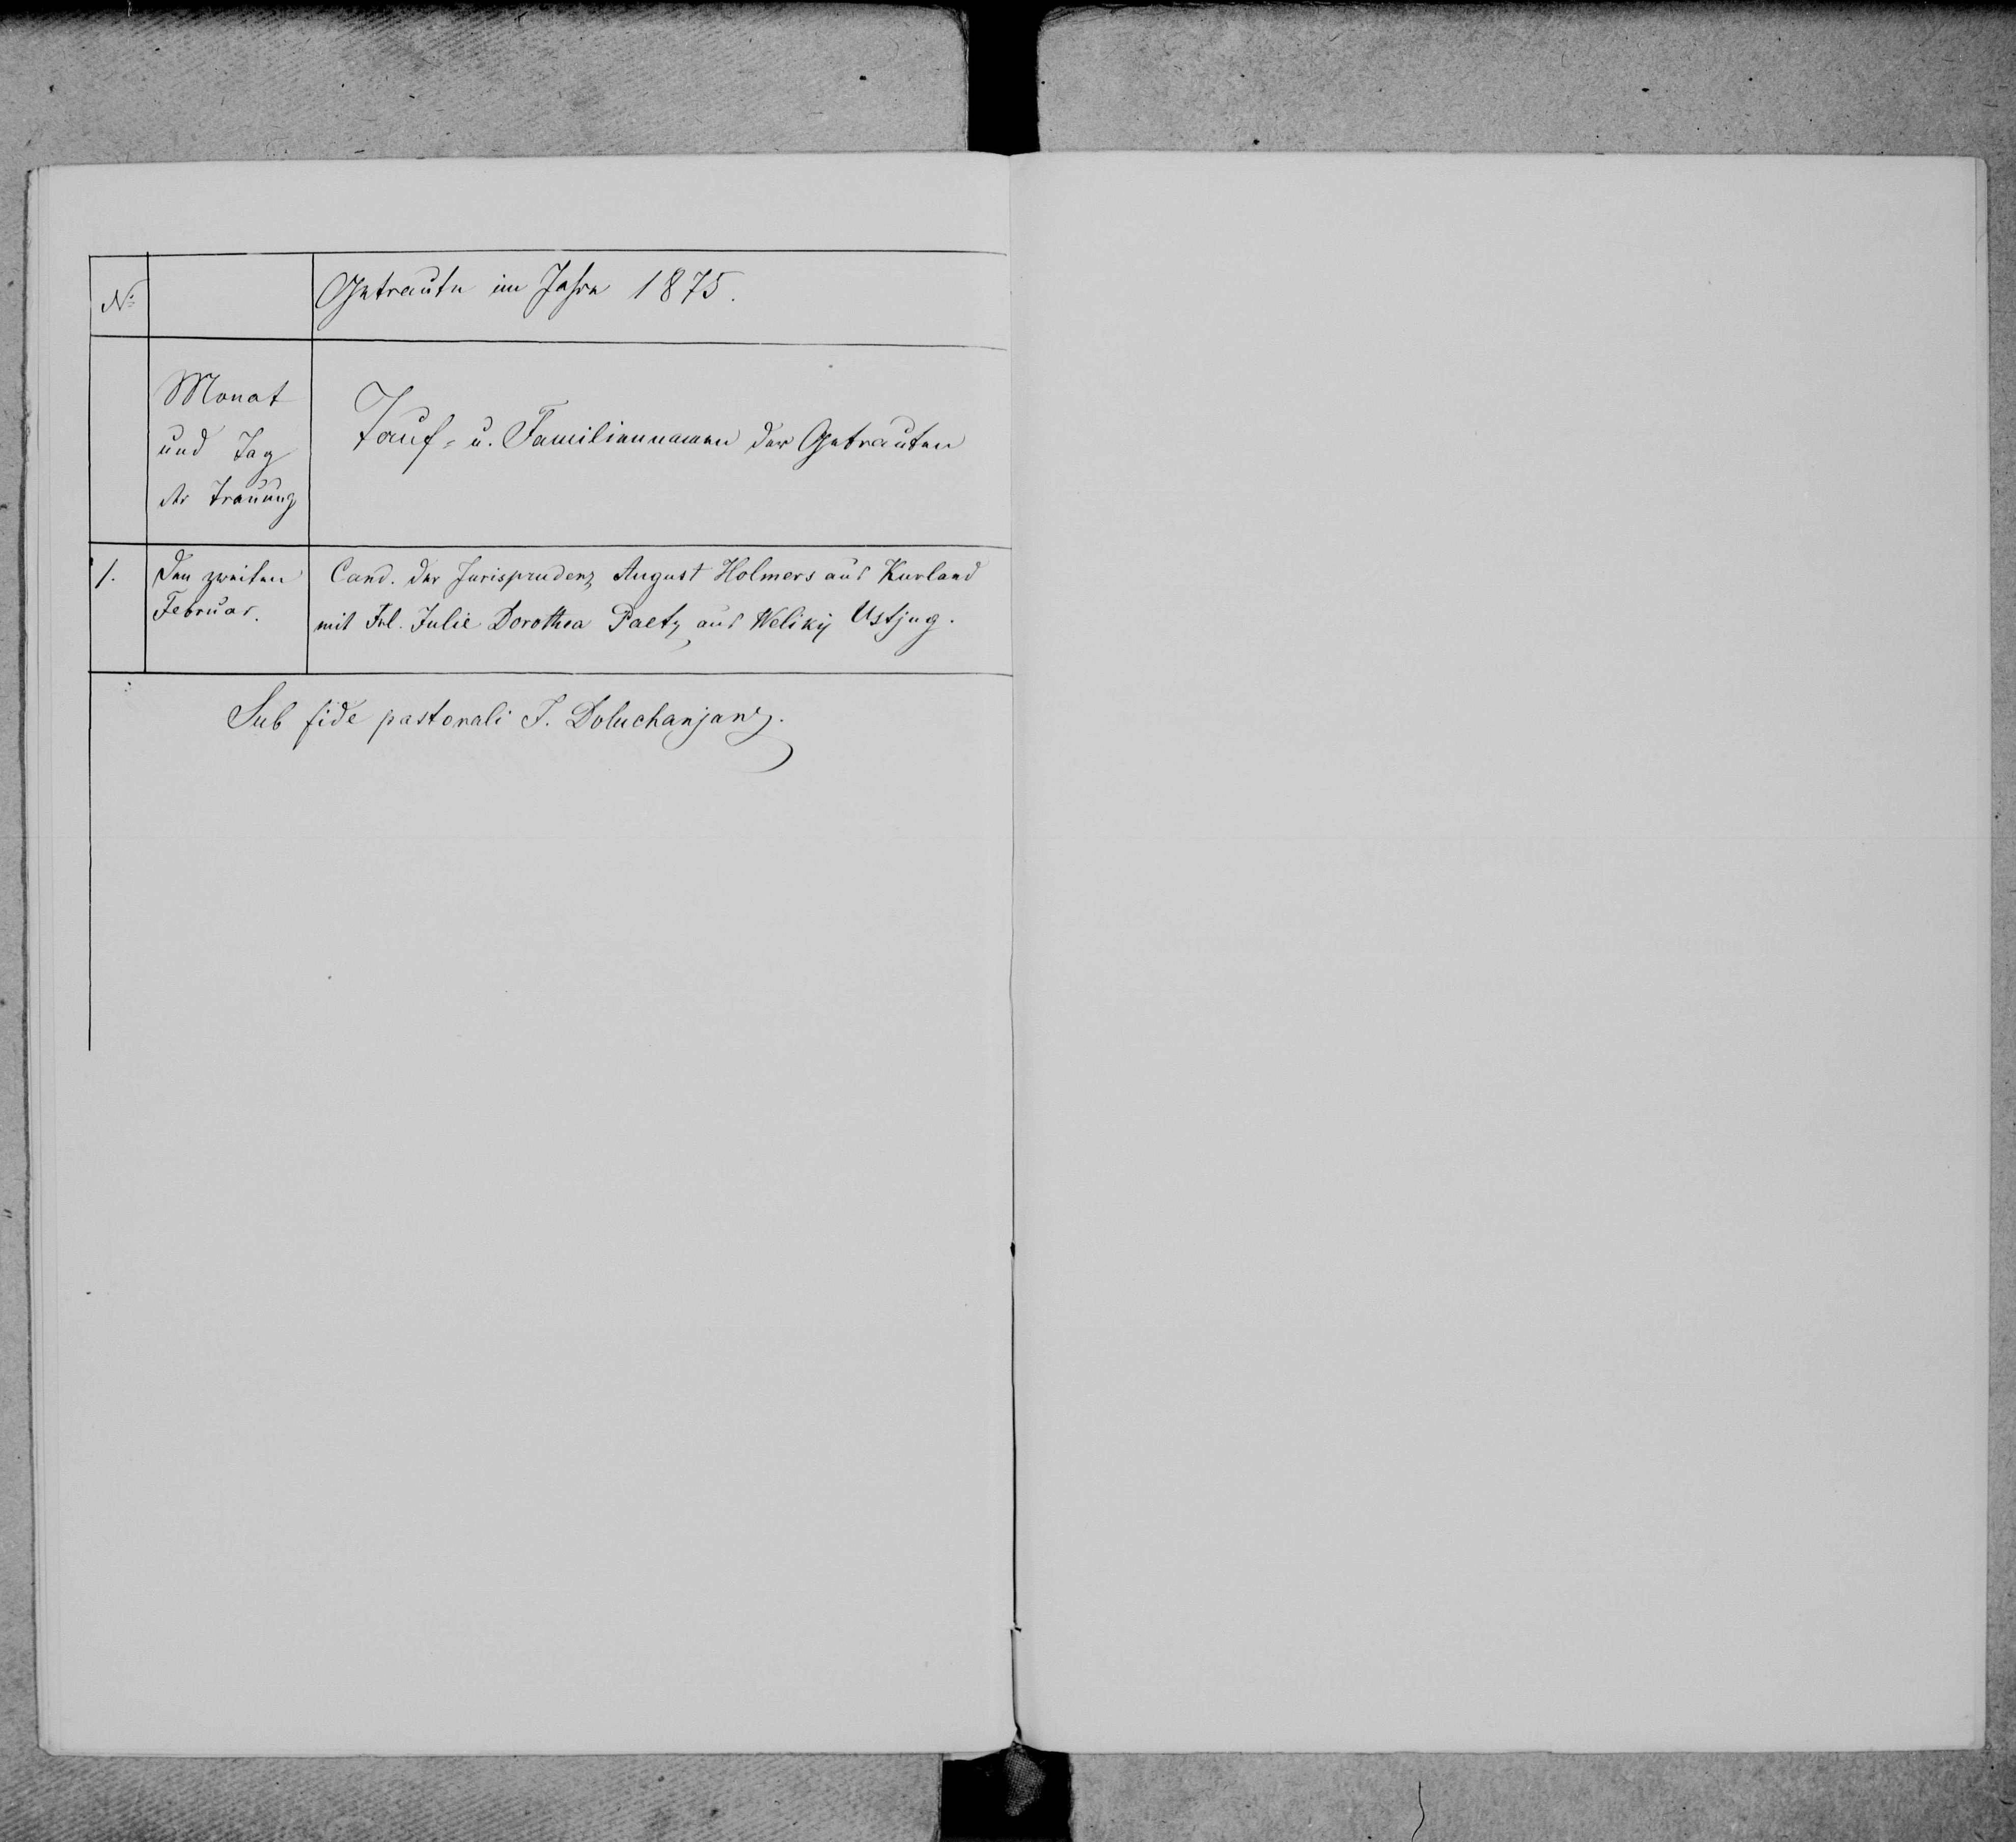 № Getraute im Jahre 1875.
Monat
und Tag
der Trauung
Tauf- u. Familiennamen der Getrauten
1. Den zweiten
Februar.
Cand. der Jurisprudenz August Holmers aus Kurland
mit Frl. Julie Dorothea Paetz aus Weliky Ustjug.
Sub fide pastorali J. Doluchanjanz.